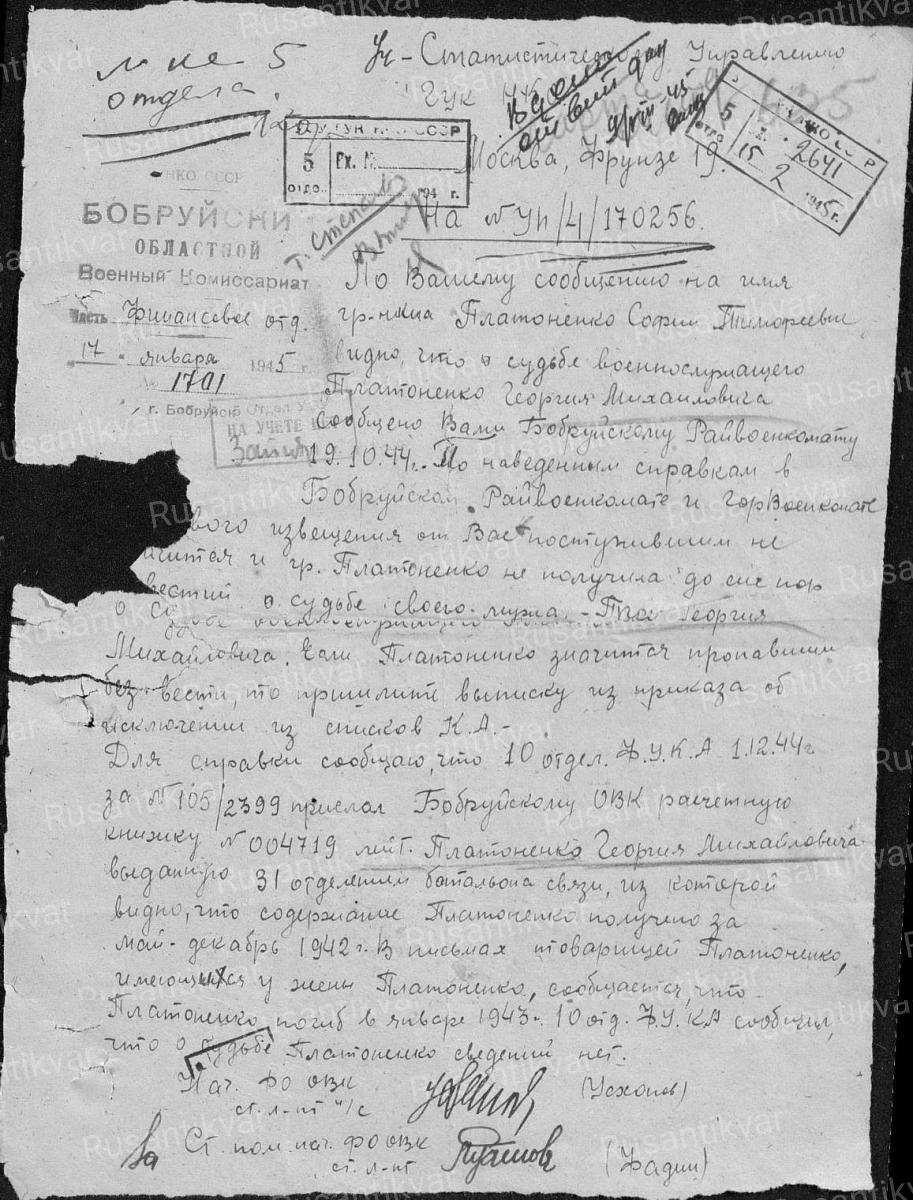 Уч-Статистическому Управлению
ГУК
5
отдела
5
отдел
Вх. №
194 г.
5
отдел
2641
15 2
1945 г.
Москва, Фрунзе 19.
т. Степан
На № УП/4/170256.
НКО СССР
БОБРУЙСКИ
ОБЛАСТНОЙ
Военный Комиссариат
Часть Финансовое отд.
"17" января 1945 г.
№ 1701
г. Бобруйск
Отдел
НА УЧЕТЕ
По Вашему сообщению на имя
гр-нки Платоненко Софии Тимофеевны
видно, что о судьбе военнослужащего
Платоненко Георгия Михайловича
сообщено Вами Бобруйскому Райвоенкомату
19.10.44г. По наведенным справкам в
Бобруйском Райвоенкомате и ГорВоенкомате
извещения от Вас поступившим не
и гр. Платоненко не получила до сих пор
о судьбе своего мужа - Георгия
Михайловича. Если Платоненко значится пропавшим
без вести, то пришлите выписку из приказа об
исключении из списков К.А.-
Для справки сообщаю, что 10 отдел. Ф.У.К.А 1.12.44г
за № 105/2399 прислал Бобруйскому ОВК расчетную
книжку № 004719 лейт. Платоненко Георгия Михайловича
выданную 31 отделением баталиона связи, из которой
видно, что содержание Платоненко получено за
май-декабрь 1942 г. В письмах товарищей Платоненко,
имеющихся у жены Платоненко, сообщается, что
Платоненко погиб в январе 1943г. 10 отд. Ф.У.КА сообщил,
что о судьбе Платоненко сведений нет.
Нач. ФО ОВК
ст. л-нт и/с
За Ст. пом. нач. ФО ОВК
ст. л-нт
(Фадин)